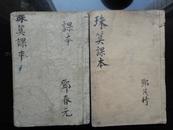 珠英課本
課本
鄧春元
珠英課本
鄧